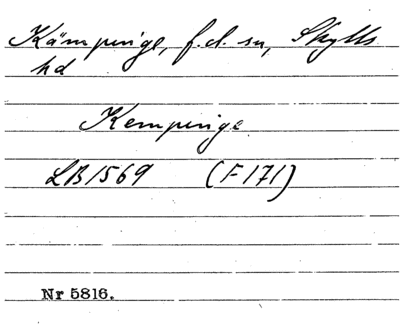 Kämpinge, f.d. sn, Skytts
hd
Kempinge
LB 1569 (F 171)
Nr 5816.